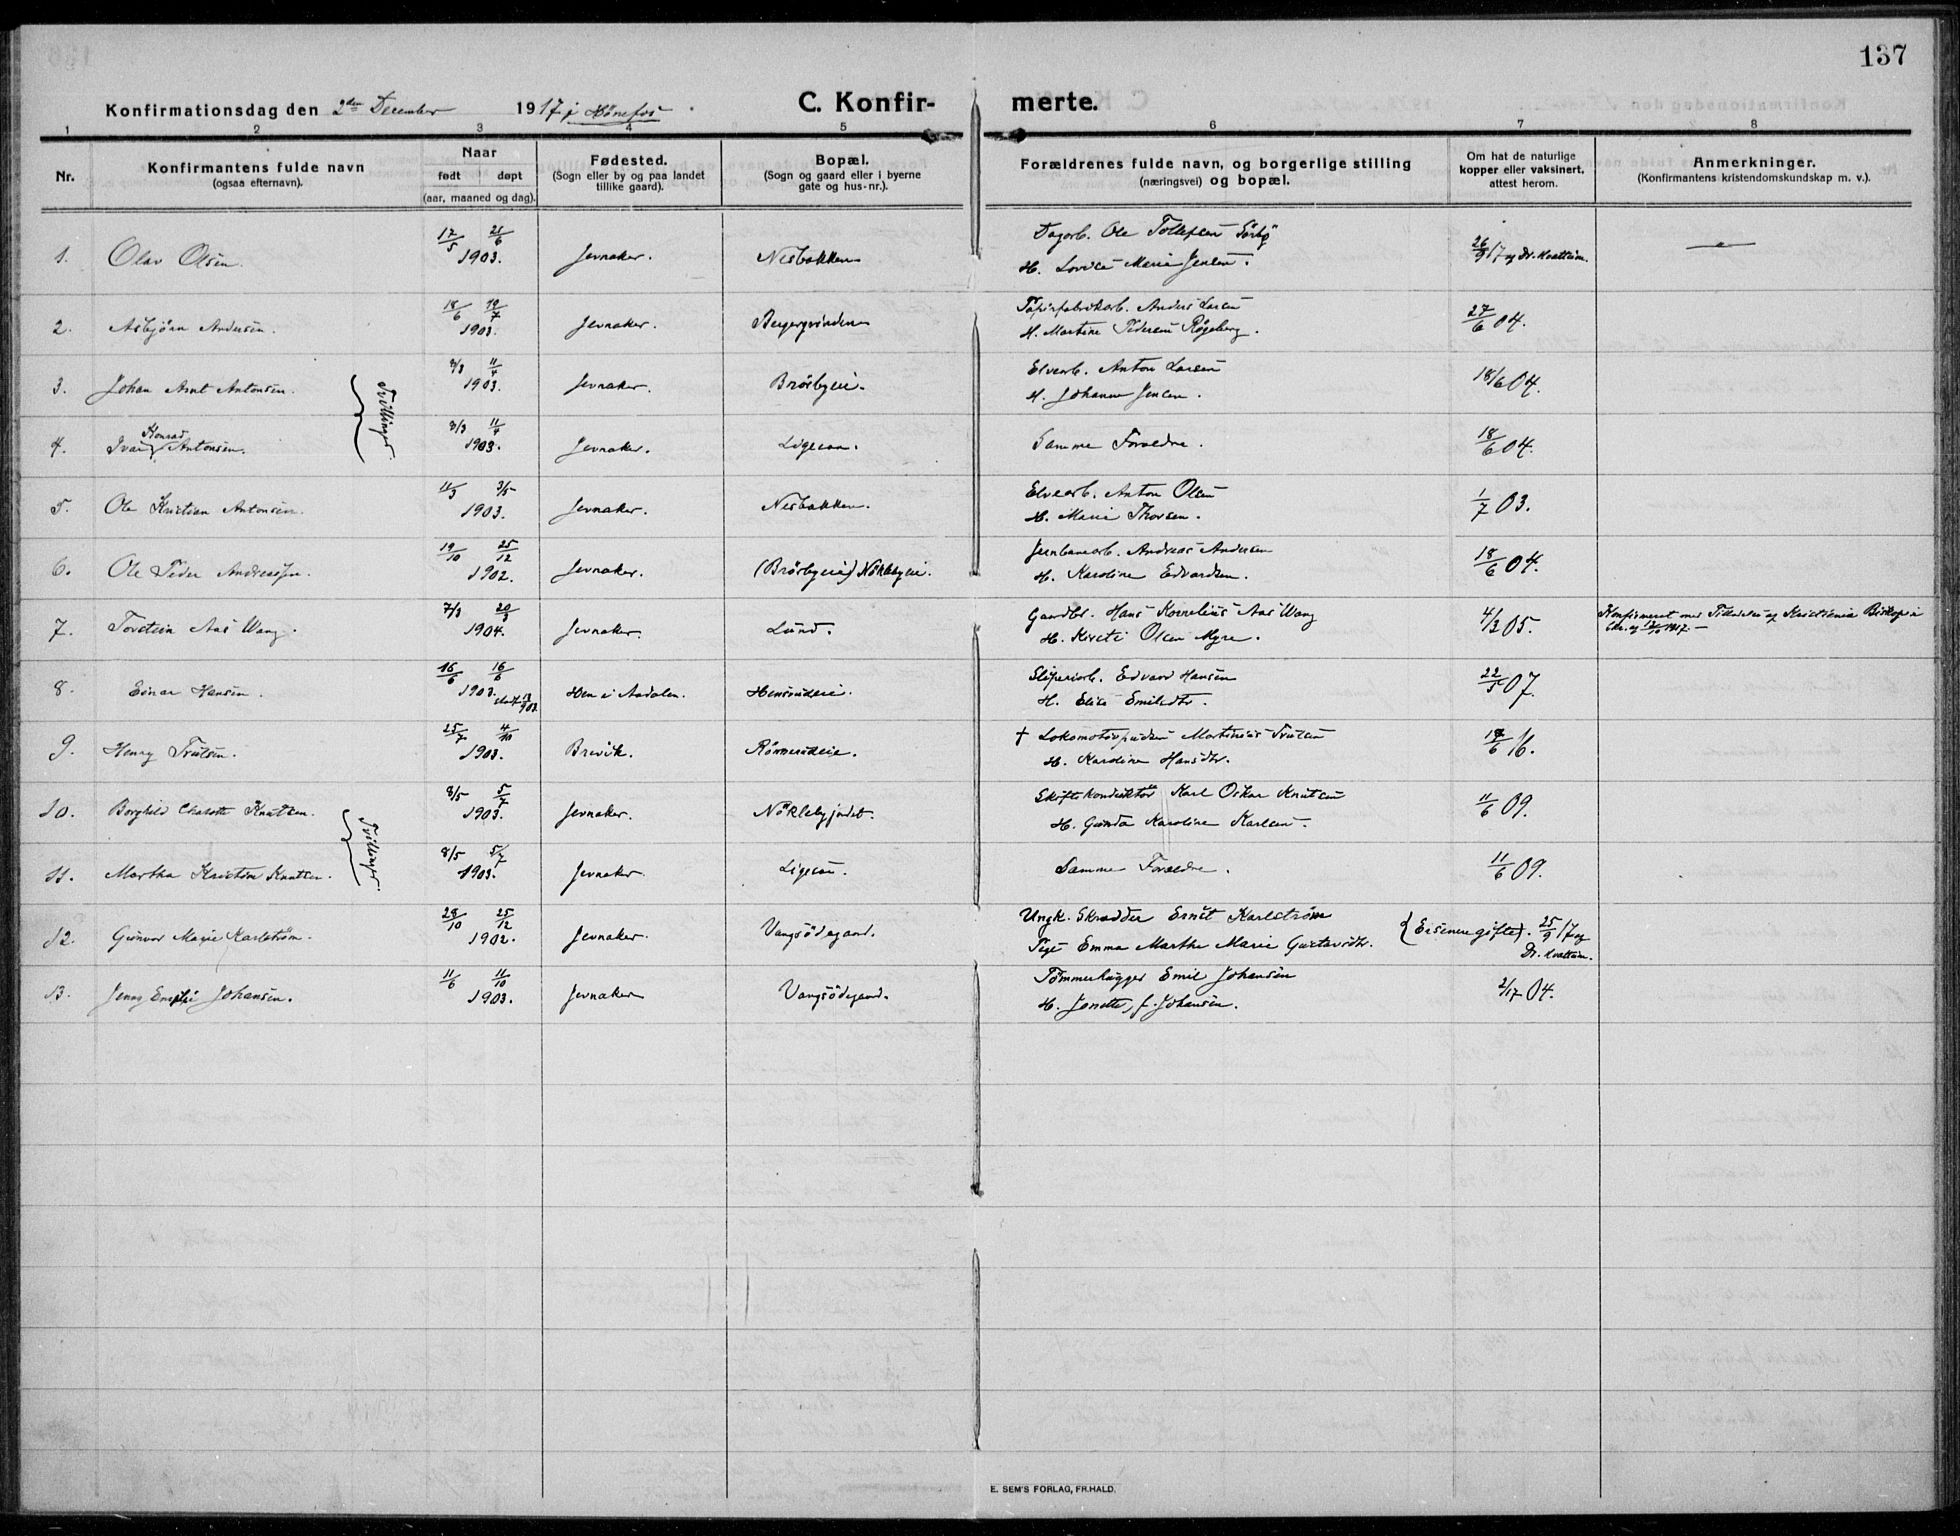 137
Konfirmationsdag den 2den December 1917 i Hønefos.
C. Konfirmerte.
1 2 3 4 5 6 7 8
Nr.
Konfirmantens fulde navn
(ogsaa efternavn).
Naar
født døpt
(aar, maaned og dag).
Fødested.
(Sogn eller by og paa landet
tillike gaard).
Bopæl.
(Sogn og gaard eller i byerne
gate og hus-nr.).
Forældrenes fulde navn, og borgerlige stilling
(næringsvei) og bopæl.
Om hat de naturlige
kopper eller vaksinert,
attest herom.
Anmerkninger.
(Konfirmantens kristendomskundskap m. v.).
1. Olav Olsen. 17/5 21/6 1903. Jevnaker. Nesbakken
Dagarb. Ole Tollefsen Sørbø
H. Lovise Marie Jensen.
26/9 17 af Dr. Kvattum.
2. Asbjörn Andersen. 18/6 19/7 1903. Jevnaker. Bergergrinden
Papirfabrikarb. Anders Larsen
H. Martine Pedersen Røgeberg.
27/6 04.
3. Johan Arnt Antonsen. 3/3 11/4 1903. Jevnaker. Brörbyeie.
Elvearb. Anton Larsen
H. Johanne Jensen.
18/6 04.
Tvillinger
4. Ivar Konrad Antonsen. 3/3 11/4 1903. Jevnaker. Ligesaa.
Samme Foraeldre.
18/6 04.
5. Ole Kristian Antonsen. 11/3 3/5 1903. Jevnaker. Nesbakken.
Elvearb. Anton Olsen
H. Marie Thorsen.
1/7 03.
6. Ole Peder Andreassen. 19/10 25/12 1902. Jevnaker. (Brörbyeie) Nöklebyeie.
Jernbanearb. Andreas Andersen
H. Karoline Edvardsen.
18/6 04.
7. Torstein Aas Wang. 7/3 20/3 1904. Jevnaker. Lund.
Gaardbr. Hans Kornelius Aas Wang
H. Kirsti Olsen Myre.
4/3 05.
Konfirmeret med Tilladelse af Kristiania Biskop i
8. Einar Hansen. 16/6 16/6 1903. Hen i Aadalen. Hensrudeie.
Sliperiarb. Edvard Hansen
H. Elise Emilsdtr.
22/5 07.
9. Henry Trulsen. 25/7 4/10 1903. Brevik. Rönnerudeie.
† Lokomotivpudser Martinius Trulsen
H. Karoline Hansdtr.
18/6 16.
10. Borghild Charlotte Knutsen. 8/5 5/7 1903. Jevnaker. Nöklebyjordet.
Skiftekonduktör Karl Oskar Knutsen
H. Gunda Karoline Karlsen.
11/6 09.
Tvillinger.
11. Martha Kristine Knutsen. 8/5 5/7 1903. Jevnaker. Ligesaa.
Samme Foraeldre.
11/6 09.
12. Gunvor Marie Karlström. 28/10 25/12 1902. Jevnaker. Vangsödegaard.
Ungk. Skrædder Ernst Karlström
Pige Emma Marthe Marie Gustavsdtr.
(Er senere gifte).
25/9 17 af
Dr. Kvattum.
13. Jenny Emilie Johansen. 11/6 11/10 1903. Jevnaker Vangsödegaard.
Tømmerhugger Emil Johansen
H. Jonette, f. Johansen.
2/17 04.
E. SEM'S FORLAG, FR.HALD.